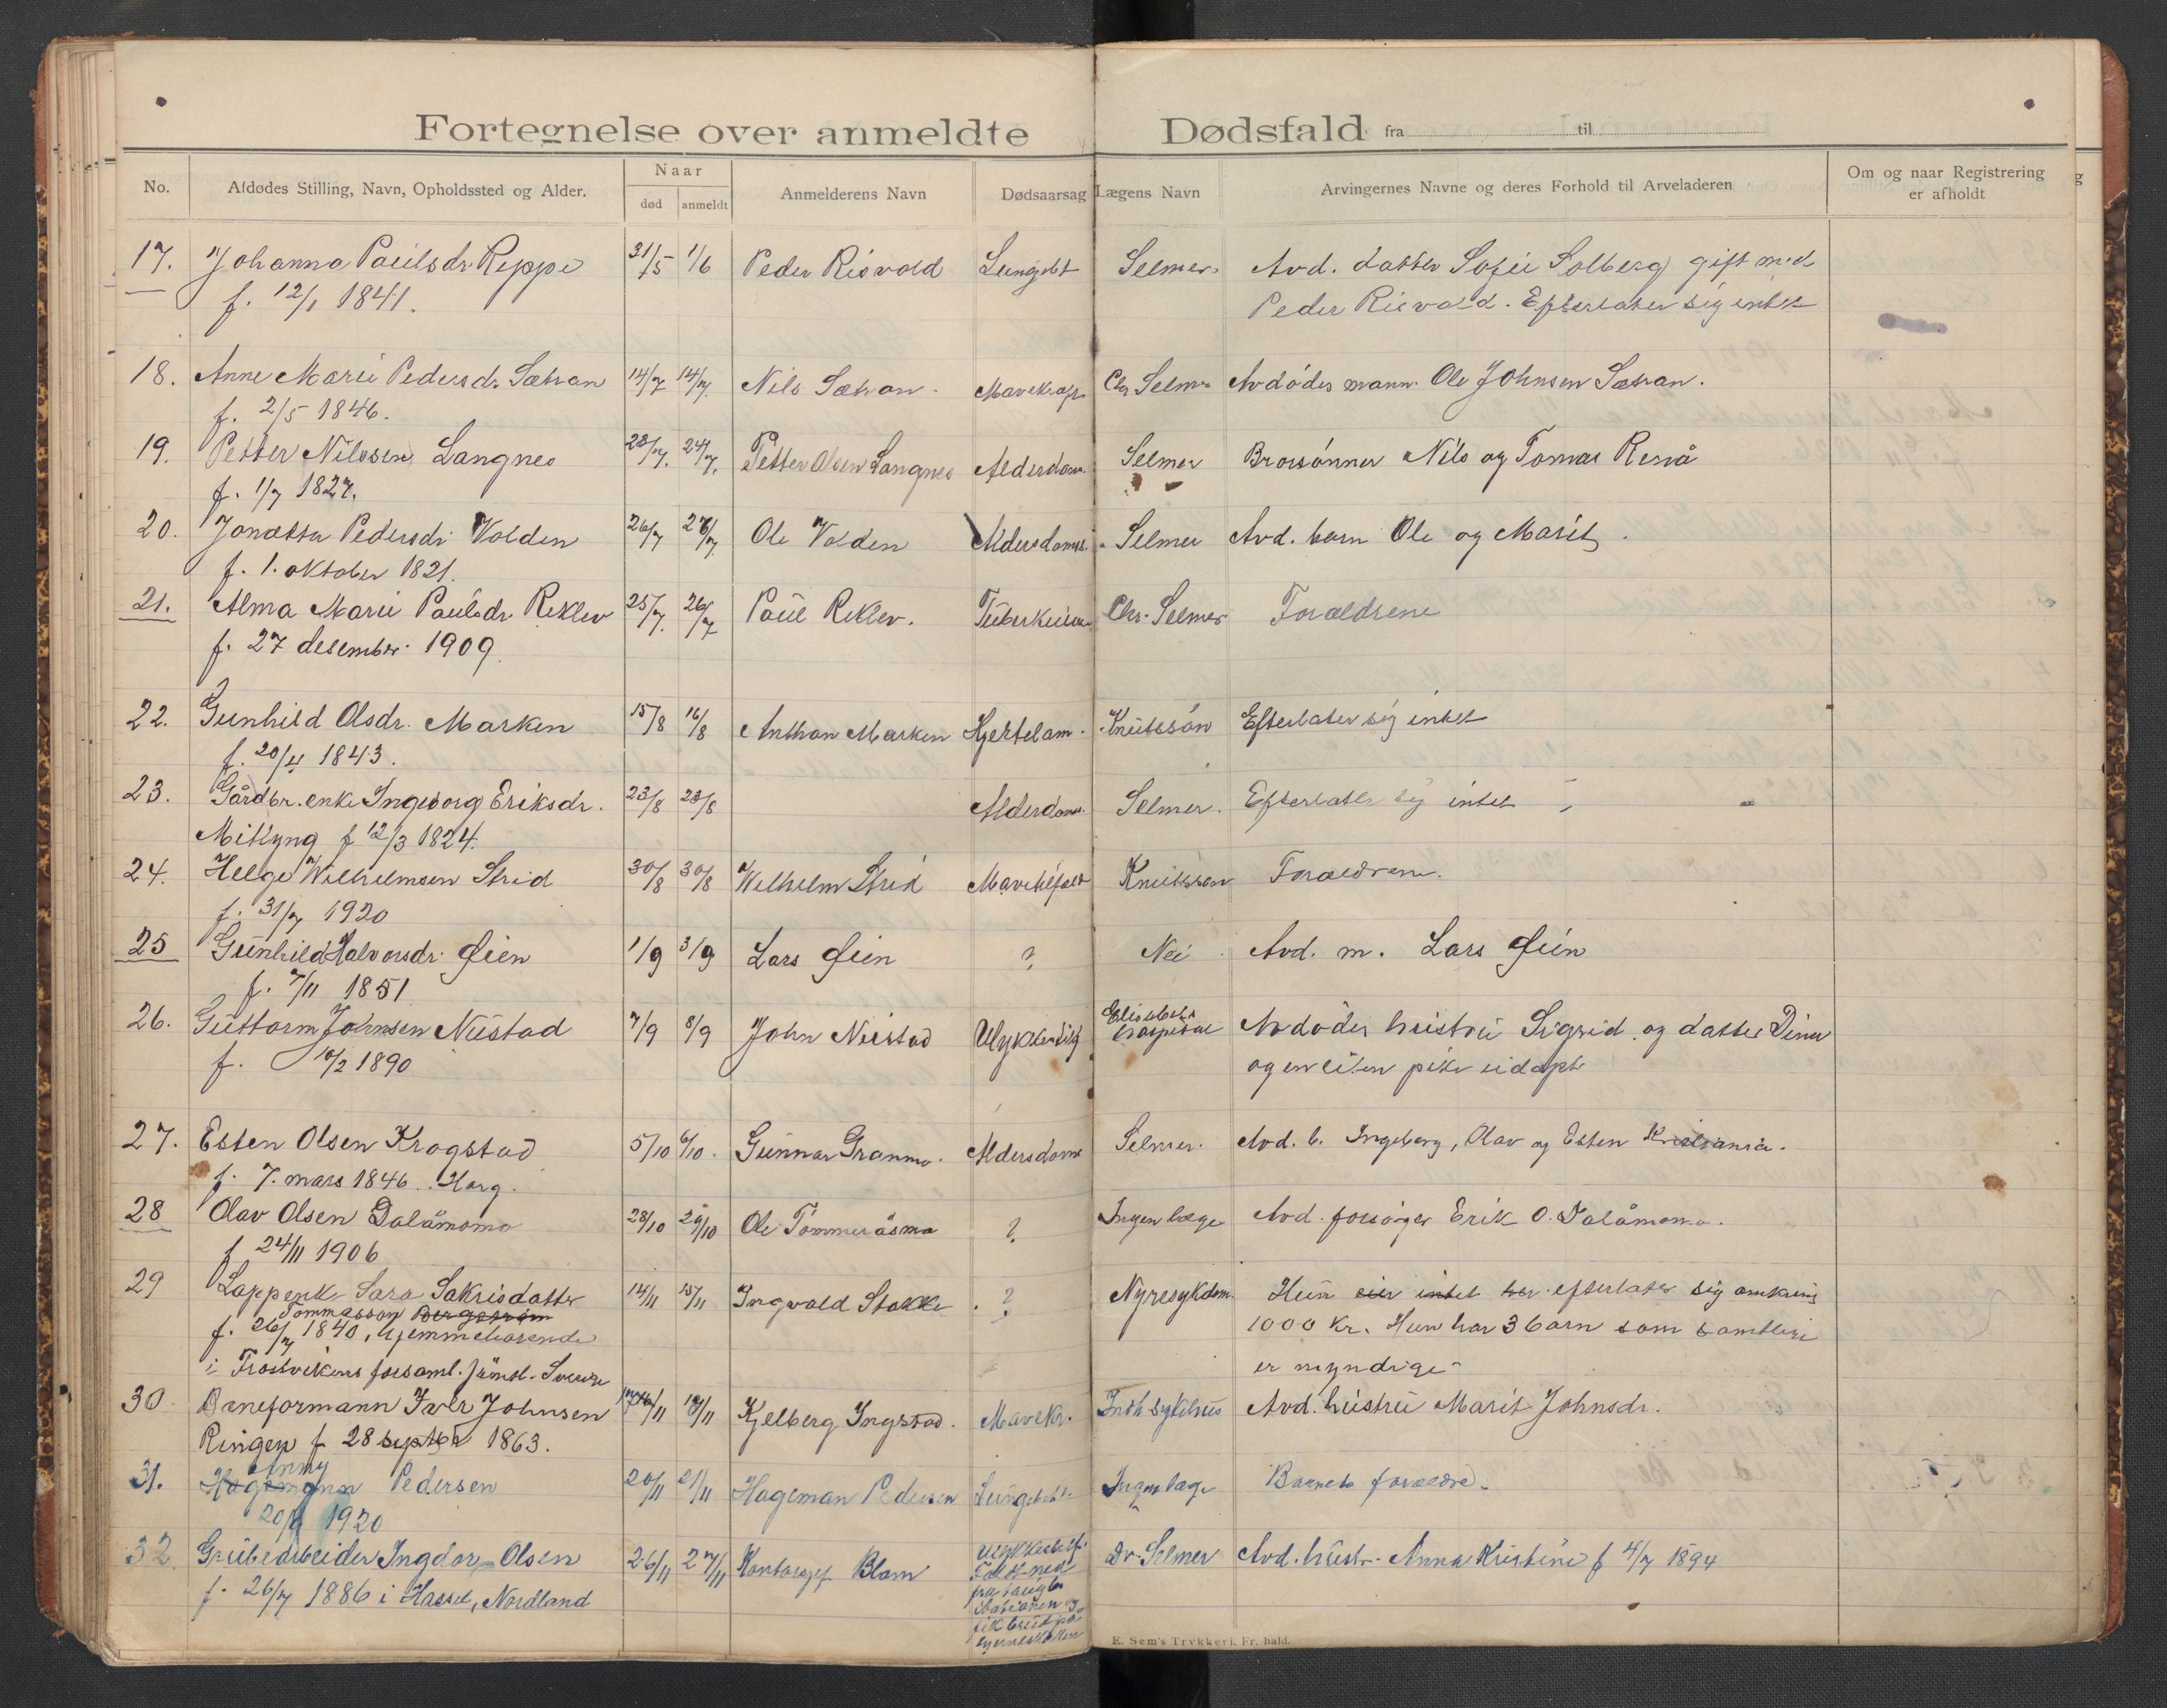 Fortegnelse over anmeldte Dødsfald fra til
No. Afdødes Stilling, Navn, Opholdssted og Alder. Naar død anmeldt Anmelderens Navn Dødsaarsag Lægens Navn Arvingernes Navne og deres Forhold til Arveladeren Om og naar Registrering er afholdt
17. Johanna Paulsdr. Reppe 31/5 1/6 Peder Risvold Lungebt Selmer. Avd. datter Sofie Solberg gift med
f. 12/1 1841. Peder Risvold. Efterlater sig intet
18. Anne Marie Pedersdr. Sætran 14/7 14/7. Nils Sætran. Mavekræft Chr Selmer Avdødes mann Ole Johnsen Sætran.
f. 2/5 1846.
19. Petter Nilssen Langnes 23/7. 24/7. Petter Olsen Langnes Alderdom. Selmer Brorsønner Nils og Tomas Reså
f. 1/7 1827.
20. Jonetta Pedersdr. Volden 26/7 27/7 Ole Volden Aldersdoms. Selmer Avd. barn Ole og Marit.
f. 1. oktober 1821.
21. Alma Marie Paulsdr. Reklev 25/7. 26/7 Paul Reklev. Tuberkulose Chr. Selmer Forældrene
f. 27 desember 1909.
22. Gunhild Olsdr. Marken 15/8 16/8 Anthon Marken Hjertelam. Knutssön Efterlater sig intet
f. 20/4 1843.
23. Gårdbr. enke Ingeborg Eriksdr. 23/8 23/8 Alderdoms. Selmer. Efterlater sig intet
Mitlyng f 12/3 1824.
24. Helge Wilhelmsen Strid 30/8 30/8 Wilhelm Strid Mavetilfeld Knutsson Forældrene.
f. 31/7 1920
25 Gunhild Halvorsdr. Øien 1/9 3/9 Lars Øien ? Nei Avd. m. Lars Øien
f. 7/11 1851
26. Guttorm Johnsen Nustad 7/9 8/9 John Nustad Ulykkestilf Elisabeth hospital Avdødes hustru Sigrid og datter Dina
f. 10/2 1890 og en liten pike uidøpt
27. Esten Olsen Krogstad 5/10 6/10. Gunnar Granmo. Aldersdoms Selmer. Avd. b. Ingeborg, Olav og Esten Kristiania.
f. 7. mars 1846. Horg.
28 Olav Olsen Dalåmoma 28/10 29/10 Ole Tömmeråsmo ? Ingen læge Avd. forsörger Erik O. Dalåmomo.
f 24/11 1906
29 Lappenk Sara Sakrisdatter 14/11 15/11 Ingvald Stokke. ? Nyresykdom. Hun eier intet har efterlater sig omkring
Tommasson Bergström 1000 Kr. Hun har 3 barn som samtlige
f. 26/7 1840, hjemmehørende er myndige
i Frostvikens forsaml. Jämtl. Sverige
30. Baneformann Jarle Johnsen 17/11 19/11 Kjelberg Ingstad. Mavekr. Innh sykehus Avd. hustru Marit Johnsdr.
Ringen f 28 septbr 1863.
31. Anny
Hagemann Pedersen 20/11 21/11 Hageman Pedersen Lungebet. Ingen læge Barnets forældre.
20/9 1920
32 Grubearbeider Ingdor Olsen 26/11 27/11 Kontorsjef Blom Ulykkestilf. Faldt ned fra taugbestasionen og fik brud på hjerneskallen Dr Selmer Avd. hustr. Anna Kristine f 4/7 1894
f. 26/7 1886 i Hassel, Nordland
E. Sem's Trykkeri, Fr. hald.